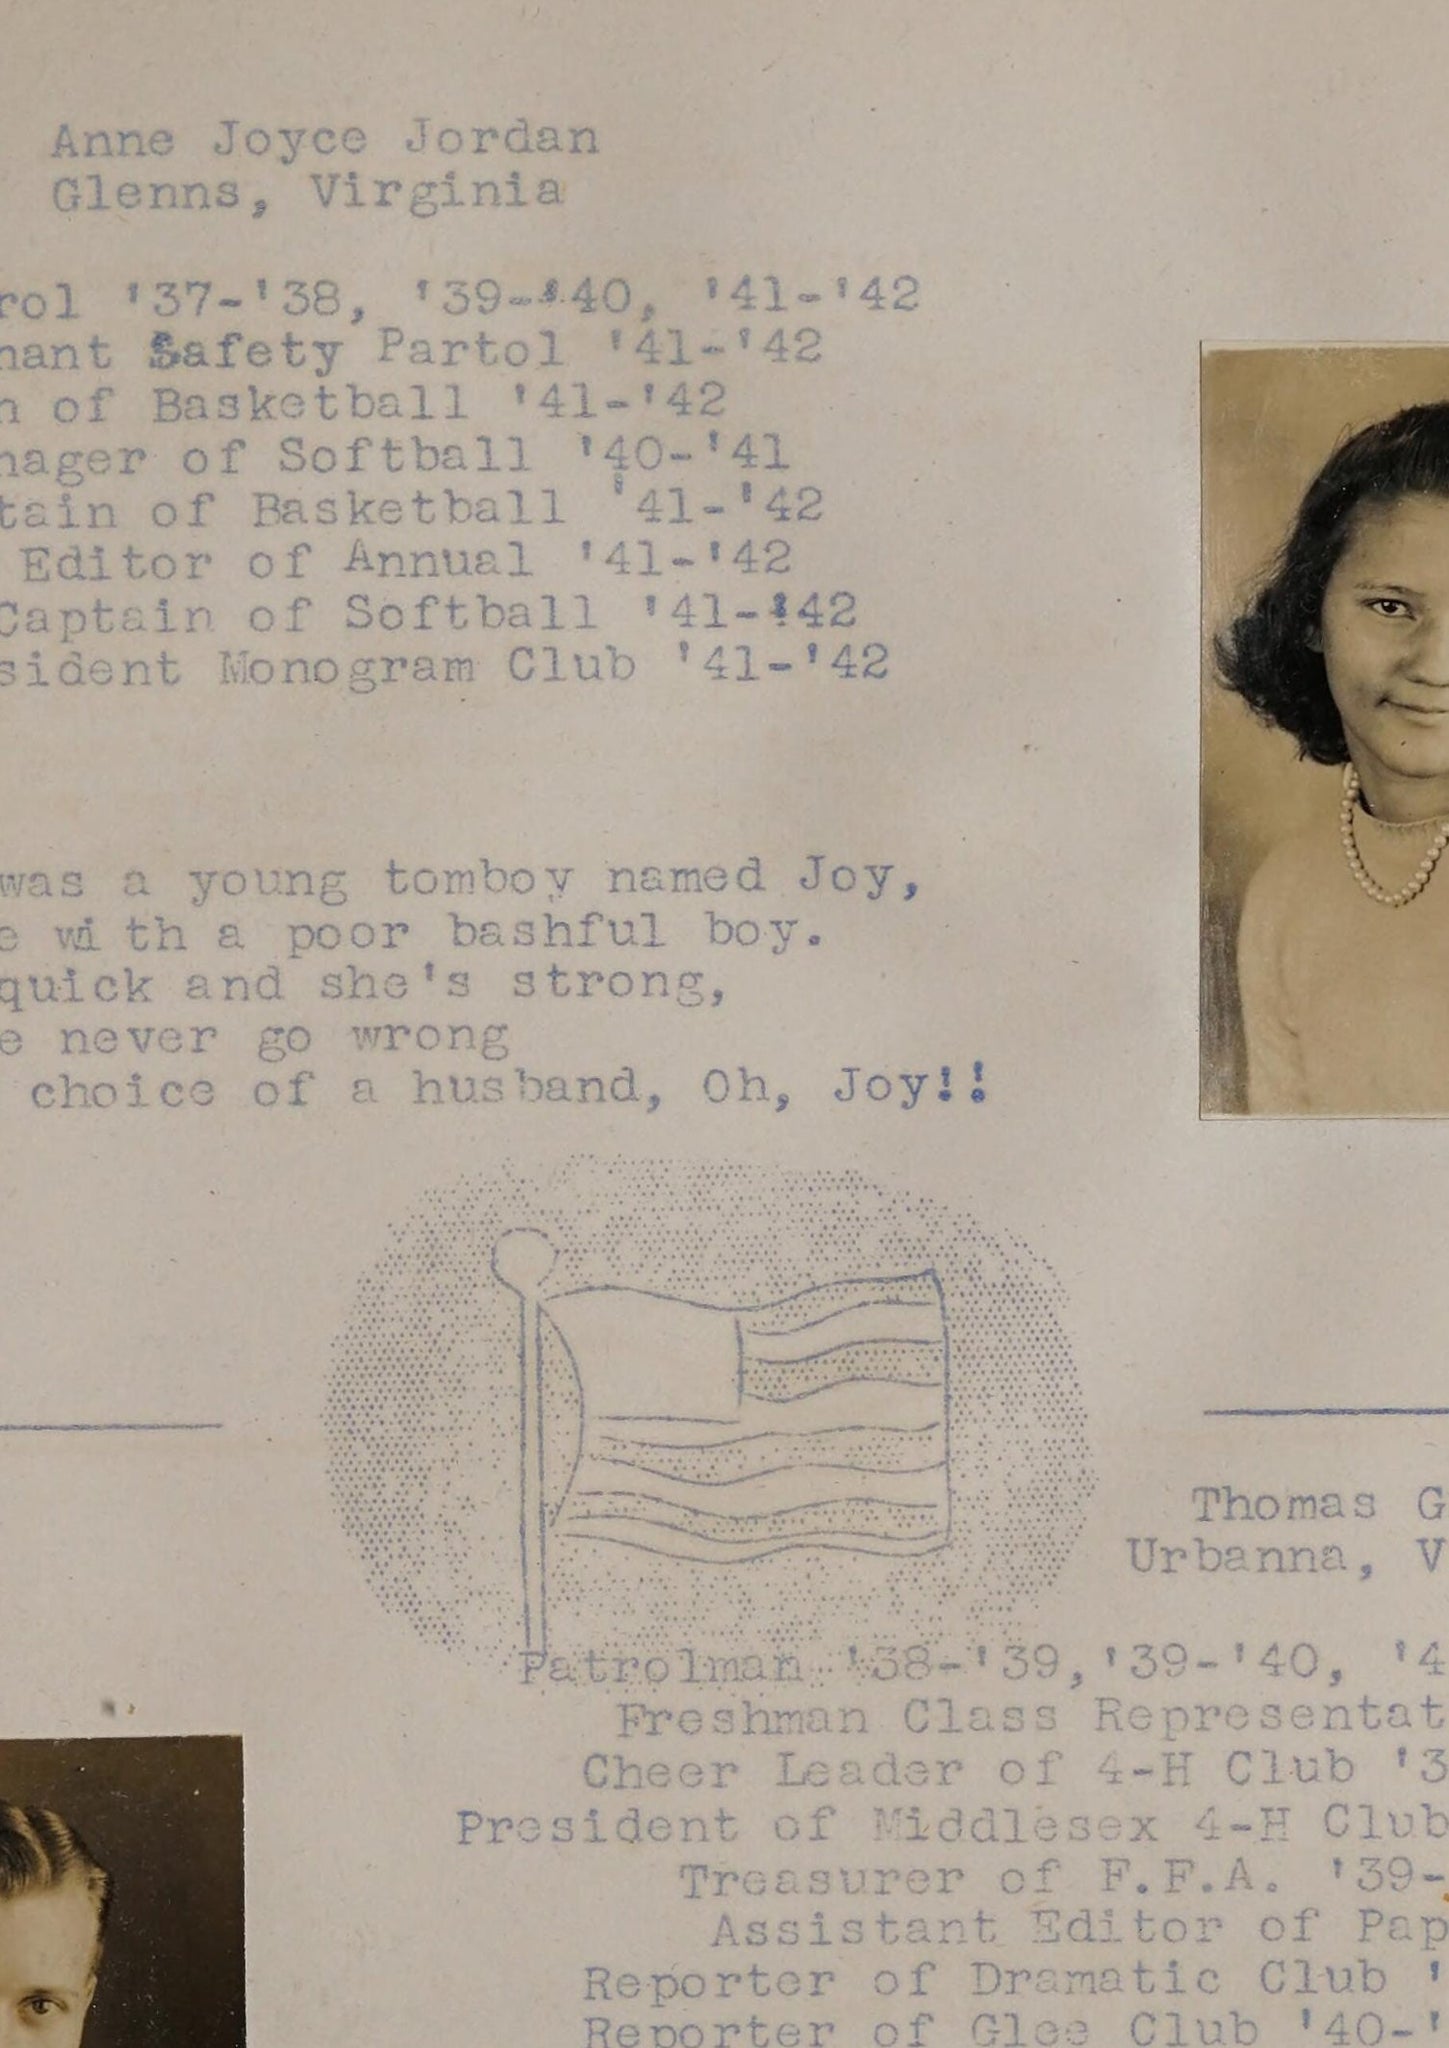 Anne Joyce Jordan
Glenns, Virginia
rol '37-'38, '39-'40, '41-'42
nant Safety Partol '41-'42
n of Basketball '41-'42
nager of Softball '40-'41
tain of Basketball '41-'42
Editor of Annual '41-'42
Captain of Softball '41-'42
sident Monogram Club '41-'42
was a young tomboy named Joy,
e with a poor bashful boy.
quick and she's strong,
e never go wrong
choice of a husband, Oh, Joy!!
Thomas G
Urbanna, V
Patrolman '38-'39,'39-'40, '4
Freshman Class Representat
Cheer Leader of 4-H Club '3
President of Middlesex 4-H Club
Treasurer of F.F.A. '39-
Assistant Editor of Pap
Reporter of Dramatic Club '
Reporter of Glee Club '40-'